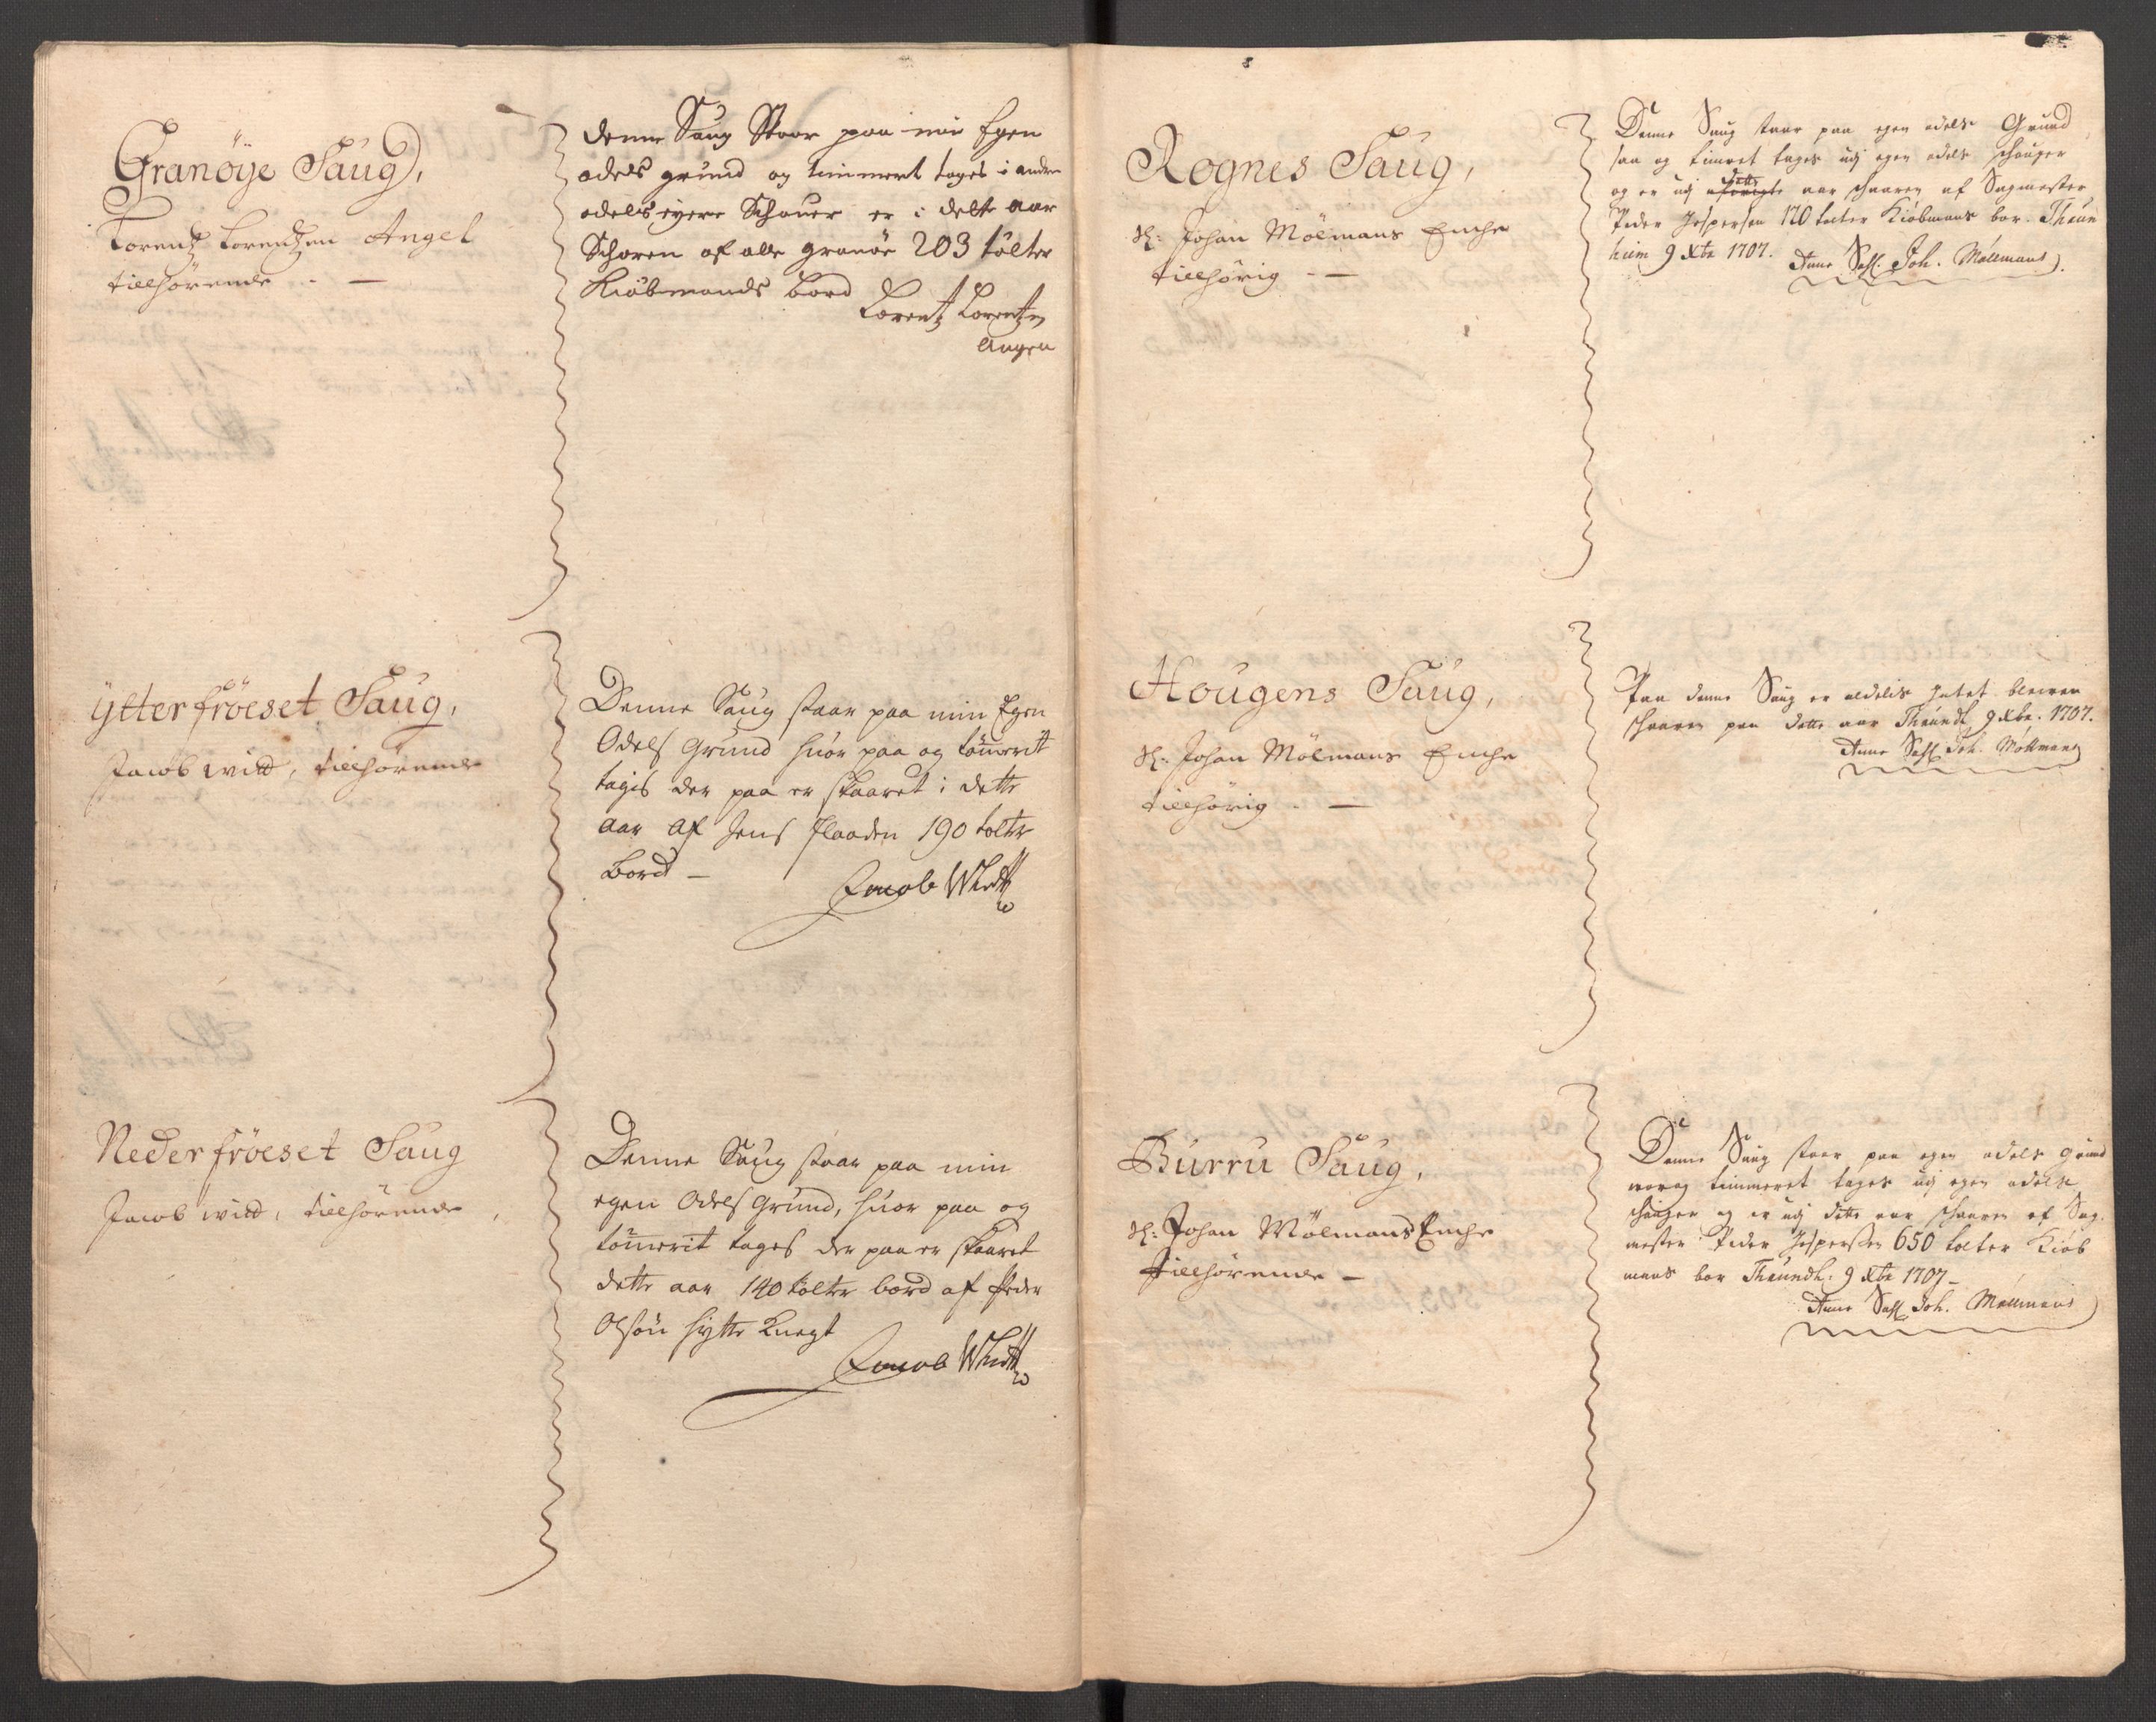 Granöye Saug,
Lorentz Lorentzen Angel
tillhørende . —
denne Saug Staar paa min Egen
odels grund og timmeret tages i andre
odels eyere Schouer er i dette aar
Schoren af alle granöe 203 tölter
Kiöbmands bord
Lorentz Lorentzen
Angen
Ytterfröeset Saug,
Jacob witt, tillhörende
Denne Saug staar paa min Egen
Odels Grund huor paa og tömerit
tagis der paa er skaaret i dette
aar af Jens flaaden 190 tolter
bord —
Jacob Whitt
Nederfröeset Saug
Jacob witt, tillhörende
Denne Saug staar paa min
egen Odels Grund, huor paa og
tömerit tages der paa er skaaret
dette aar 140 tolter bord af Peder
Olsön hytte Knegt
Jacob Whitt
Rognes Saug,
Sl: Johan Mölmans Enche
tillhörig . —
Denne Saug staar paa egen odels Grund
saa og timret tages udj egen odels schouger
og er udj dette aar schaaren af Sagmester
Peder Jespersen 170 tolter Kiöbmans bor. Thrun
hiem 9 Xbr 1707. Anne Sahl. Joh. Möllmans
Hougens Saug,
Sl: Johan Mölmans Enche
tillhörig . —
Paa denne Saug er aldelis Intet bleiven
schaaren paa dette aar Thrundh. 9 Xbr. 1707.
Anne Sahl Joh. Möllmans
Burru Saug,
Sl: Johan Mölmans Enche
tillhörende —
Denne Saug staar paa egen odels grund
timmeret tages udj egen odels
schouger og er udj dette aar schaaren af Sag
mester Peder Jespersen 650 tolter Kiöb
mans bor Thrundh: 9 Xbr 1707 —
Anne Sahl Joh. Möllmans